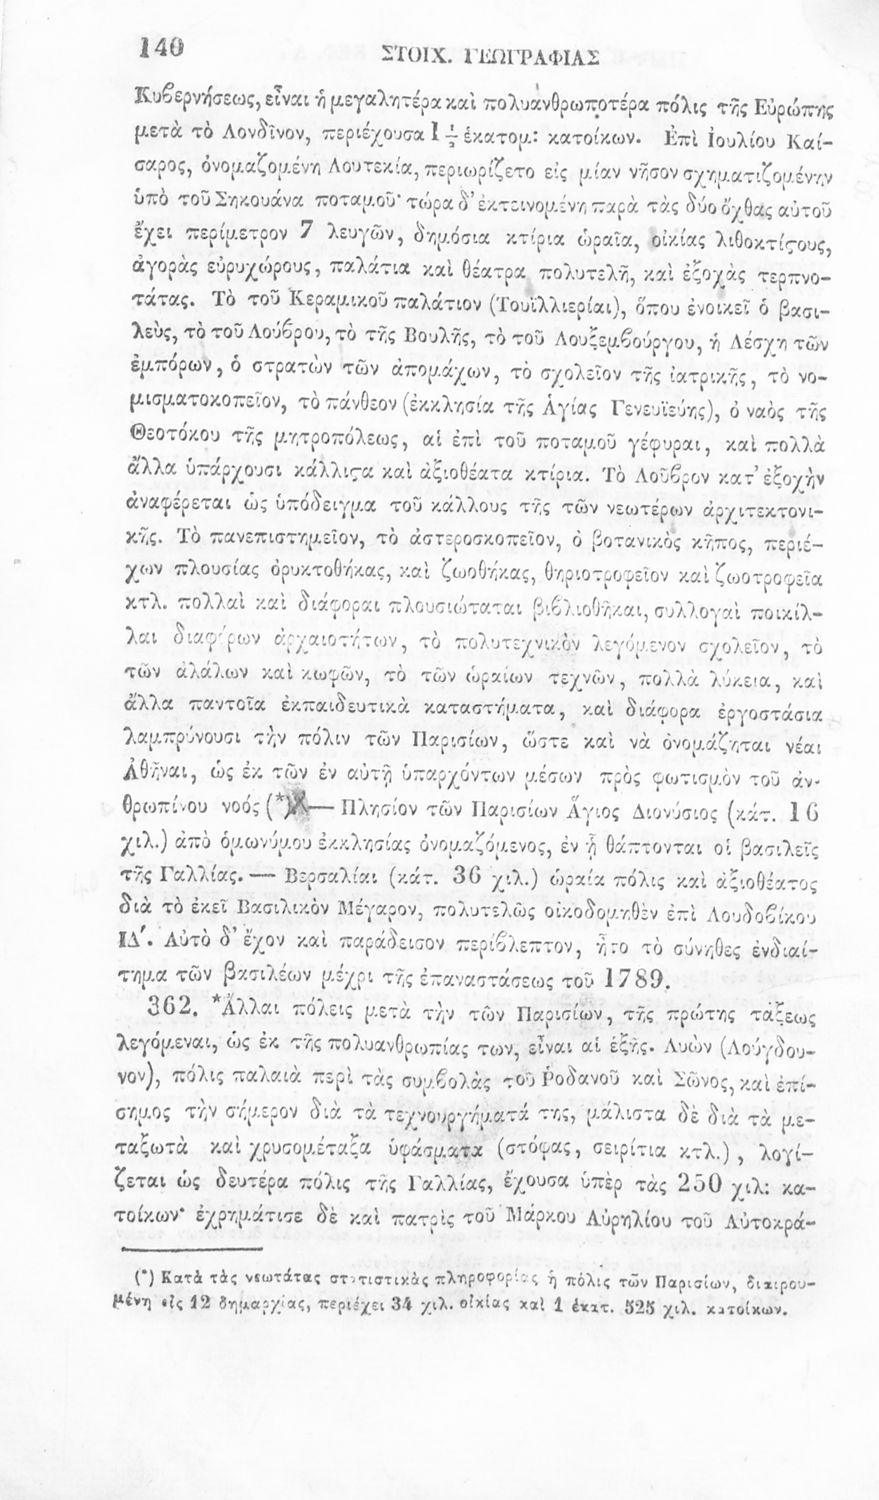 140
ΣΤΟΙΧ. ΓΕΩΓΡΑΦΙΑΣ
Κυβερνήσεως, εἶναι ἡ μεγαλητέρα καὶ πολυανθρωποτέρα πόλις τῆς Εὐρώπης
μετὰ τὸ Λονδῖνον, περιέχουσα 1 ½ ἑκατομ: κατοίκων. Ἐπὶ Ἰουλίου Καί-
σαρος, ὀνομαζομένη Λουτεκία, περιωρίζετο εἰς μίαν νῆσον σχηματιζομένην
ὑπὸ τοῦ Σηκουάνα ποταμοῦ· τώρα δ' ἐκτεινομένη παρὰ τὰς δύο ὄχθας αὐτοῦ
ἔχει περίμετρον 7 λευγῶν, δημόσια κτίρια ὡραῖα, οἰκίας λιθοκτίςους,
ἀγορὰς εὐρυχώρους, παλάτια καὶ θέατρα πολυτελῆ, καὶ ἐξοχὰς τερπνο-
τάτας. Τὸ τοῦ Κεραμικοῦ παλάτιον (Τουϊλλιερίαι), ὅπου ἐνοικεῖ ὁ βασι-
λεὺς, τὸ τοῦ Λούβρου, τὸ τῆς Βουλῆς, τὸ τοῦ Λουξεμβούργου, ἡ Λέσχη τῶν
ἐμπόρων, ὁ στρατὼν τῶν ἀπομάχων, τὸ σχολεῖον τῆς ἰατρικῆς, τὸ νο-
μισματοκοπεῖον, τὸ πάνθεον (ἐκκλησία τῆς Ἁγίας Γενευϊεύης), ὁ ναὸς τῆς
Θεοτόκου τῆς μητροπόλεως, αἱ ἐπὶ τοῦ ποταμοῦ γέφυραι, καὶ πολλὰ
ἄλλα ὑπάρχουσι κάλλιςα καὶ ἀξιοθέατα κτίρια. Τὸ Λοῦβρον κατ' ἐξοχὴν
ἀναφέρεται ὡς ὑπόδειγμα τοῦ κάλλους τῆς τῶν νεωτέρων ἀρχιτεκτονι-
κῆς. Τὸ πανεπιστημεῖον, τὸ ἀστεροσκοπεῖον, ὁ βοτανικὸς κῆπος, περιέ-
χων πλουσίας ὀρυκτοθήκας, καὶ ζωοθήκας, θηριοτροφεῖον καὶ ζωοτροφεῖα
κτλ. πολλαὶ καὶ διάφοραι πλουσιώταται βιβλιοθῆκαι, συλλογαὶ ποικίλ-
λαι διαφόρων ἀρχαιοτήτων, τὸ πολυτεχνικὸν λεγόμενον σχολεῖον, τὸ
τῶν ἀλάλων καὶ κωφῶν, τὸ τῶν ὡραίων τεχνῶν, πολλὰ λύκεια, καὶ
ἄλλα παντοῖα ἐκπαιδευτικὰ καταστήματα, καὶ διάφορα ἐργοστάσια
λαμπρύνουσι τὴν πόλιν τῶν Παρισίων, ὥστε καὶ νὰ ὀνομάζηται νέαι
Ἀθῆναι, ὡς ἐκ τῶν ἐν αὐτῇ ὑπαρχόντων μέσων πρὸς φωτισμὸν τοῦ ἀν-
θρωπίνου νοός (*) — Πλησίον τῶν Παρισίων Ἅγιος Διονύσιος (κάτ. 16
χιλ.) ἀπὸ ὁμωνύμου ἐκκλησίας ὀνομαζόμενος, ἐν ᾗ θάπτονται οἱ βασιλεῖς
τῆς Γαλλίας. — Βερσαλίαι (κάτ. 36 χιλ.) ὡραία πόλις καὶ ἀξιοθέατος
διὰ τὸ ἐκεῖ Βασιλικὸν Μέγαρον, πολυτελῶς οἰκοδομηθὲν ἐπὶ Λουδοβίκου
ΙΔ΄. Αὐτὸ δ' ἔχον καὶ παράδεισον περίβλεπτον, ἦτο τὸ σύνηθες ἐνδιαί-
τημα τῶν βασιλέων μέχρι τῆς ἐπαναστάσεως τοῦ 1789.
362. *Ἄλλαι πόλεις μετὰ τὴν τῶν Παρισίων, τῆς πρώτης τάξεως
λεγόμεναι, ὡς ἐκ τῆς πολυανθρωπίας των, εἶναι αἱ ἑξῆς. Λυὼν (Λούγδου-
νον), πόλις παλαιὰ περὶ τὰς συμβολὰς τοῦ Ῥοδανοῦ καὶ Σῶνος, καὶ ἐπί-
σημος τὴν σήμερον διὰ τὰ τεχνουργήματά της, μάλιστα δὲ διὰ τὰ με-
ταξωτὰ καὶ χρυσομέταξα ὑφάσματα (στόφας, σειρίτια κτλ.), λογί-
ζεται ὡς δευτέρα πόλις τῆς Γαλλίας, ἔχουσα ὑπὲρ τὰς 250 χιλ: κα-
τοίκων· ἐχρημάτισε δὲ καὶ πατρὶς τοῦ Μάρκου Αὐρηλίου τοῦ Αὐτοκρά-
(*) Κατὰ τὰς νεωτάτας στατιστικὰς πληροφορίας ἡ πόλις τῶν Παρισίων, διαιρου-
μένη εἰς 12 δημαρχίας, περιέχει 34 χιλ. οἰκίας καὶ 1 ἑκατ. 525 χιλ. κατοίκων.